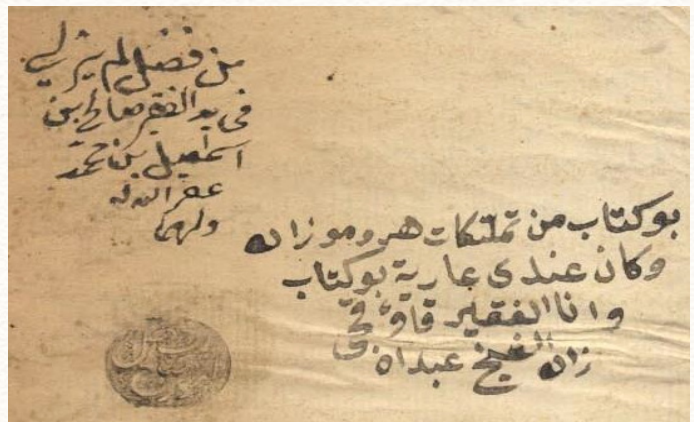 من فضل لم يزلي
في يد الفقير صالح بن
اسمعيل بن محمد
غفر الله له
ولهما
بو كتاب من تملكات هرومو زاده
وكان عندي عارية بو كتاب
وانا الفقير
زاده الشيخ عبدالله